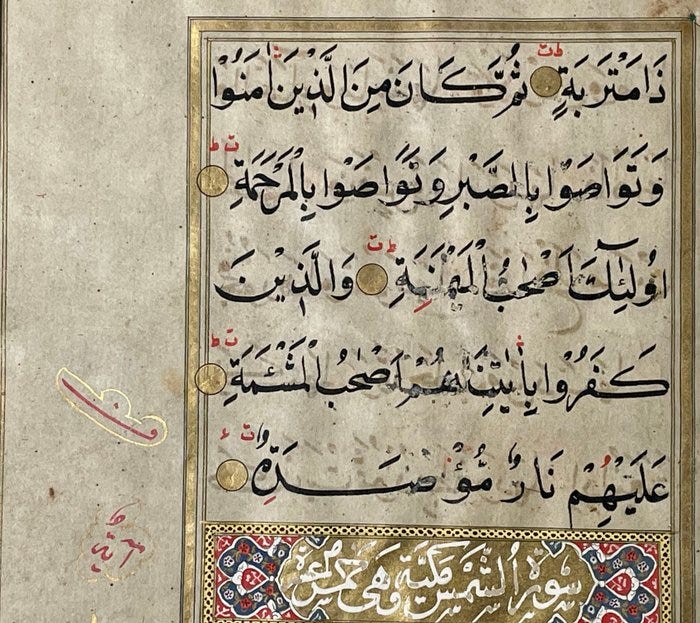 ذَا مَتْرَبَةٍ ثُمَّ كَانَ مِنَ الَّذِيْنَ اٰمَنُوْا
وَتَوَاصَوْا بِالصَّبْرِ وَتَوَاصَوْا بِالْمَرْحَمَةِ
اُولٰئِكَ اَصْحٰبُ الْمَيْمَنَةِ وَالَّذِيْنَ
كَفَرُوْا بِاٰيٰتِنَا هُمْ اَصْحٰبُ الْمَشْئَمَةِ
عَلَيْهِمْ نَارٌ مُّؤْصَدَةٌ
سورة الشمس مكية وهى خمس عشرة